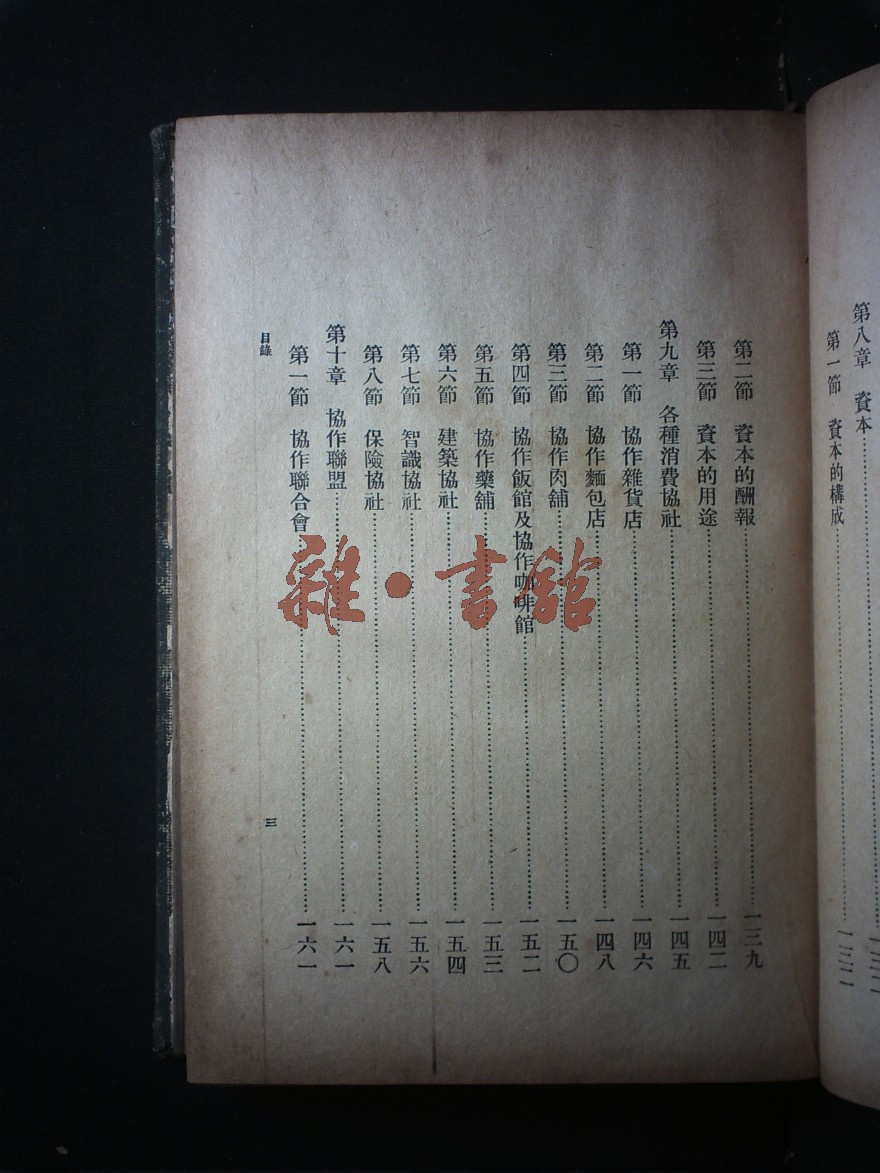 第八章 資本……一三二
第一節 資本的構成……一三二
第二節 資本的酬報……一三九
第三節 資本的用途……一四二
第九章 各種消費協社……一四五
第一節 協作雜貨店……一四六
第二節 協作麵包店……一四八
第三節 協作肉舖……一五〇
第四節 協作飯館及協作咖啡館……一五二
第五節 協作藥舖……一五三
第六節 建築協社……一五四
第七節 智識協社……一五六
第八節 保險協社……一五八
第十章 協作聯盟……一六一
第一節 協作聯合會……一六一
目錄
三
雜·書館